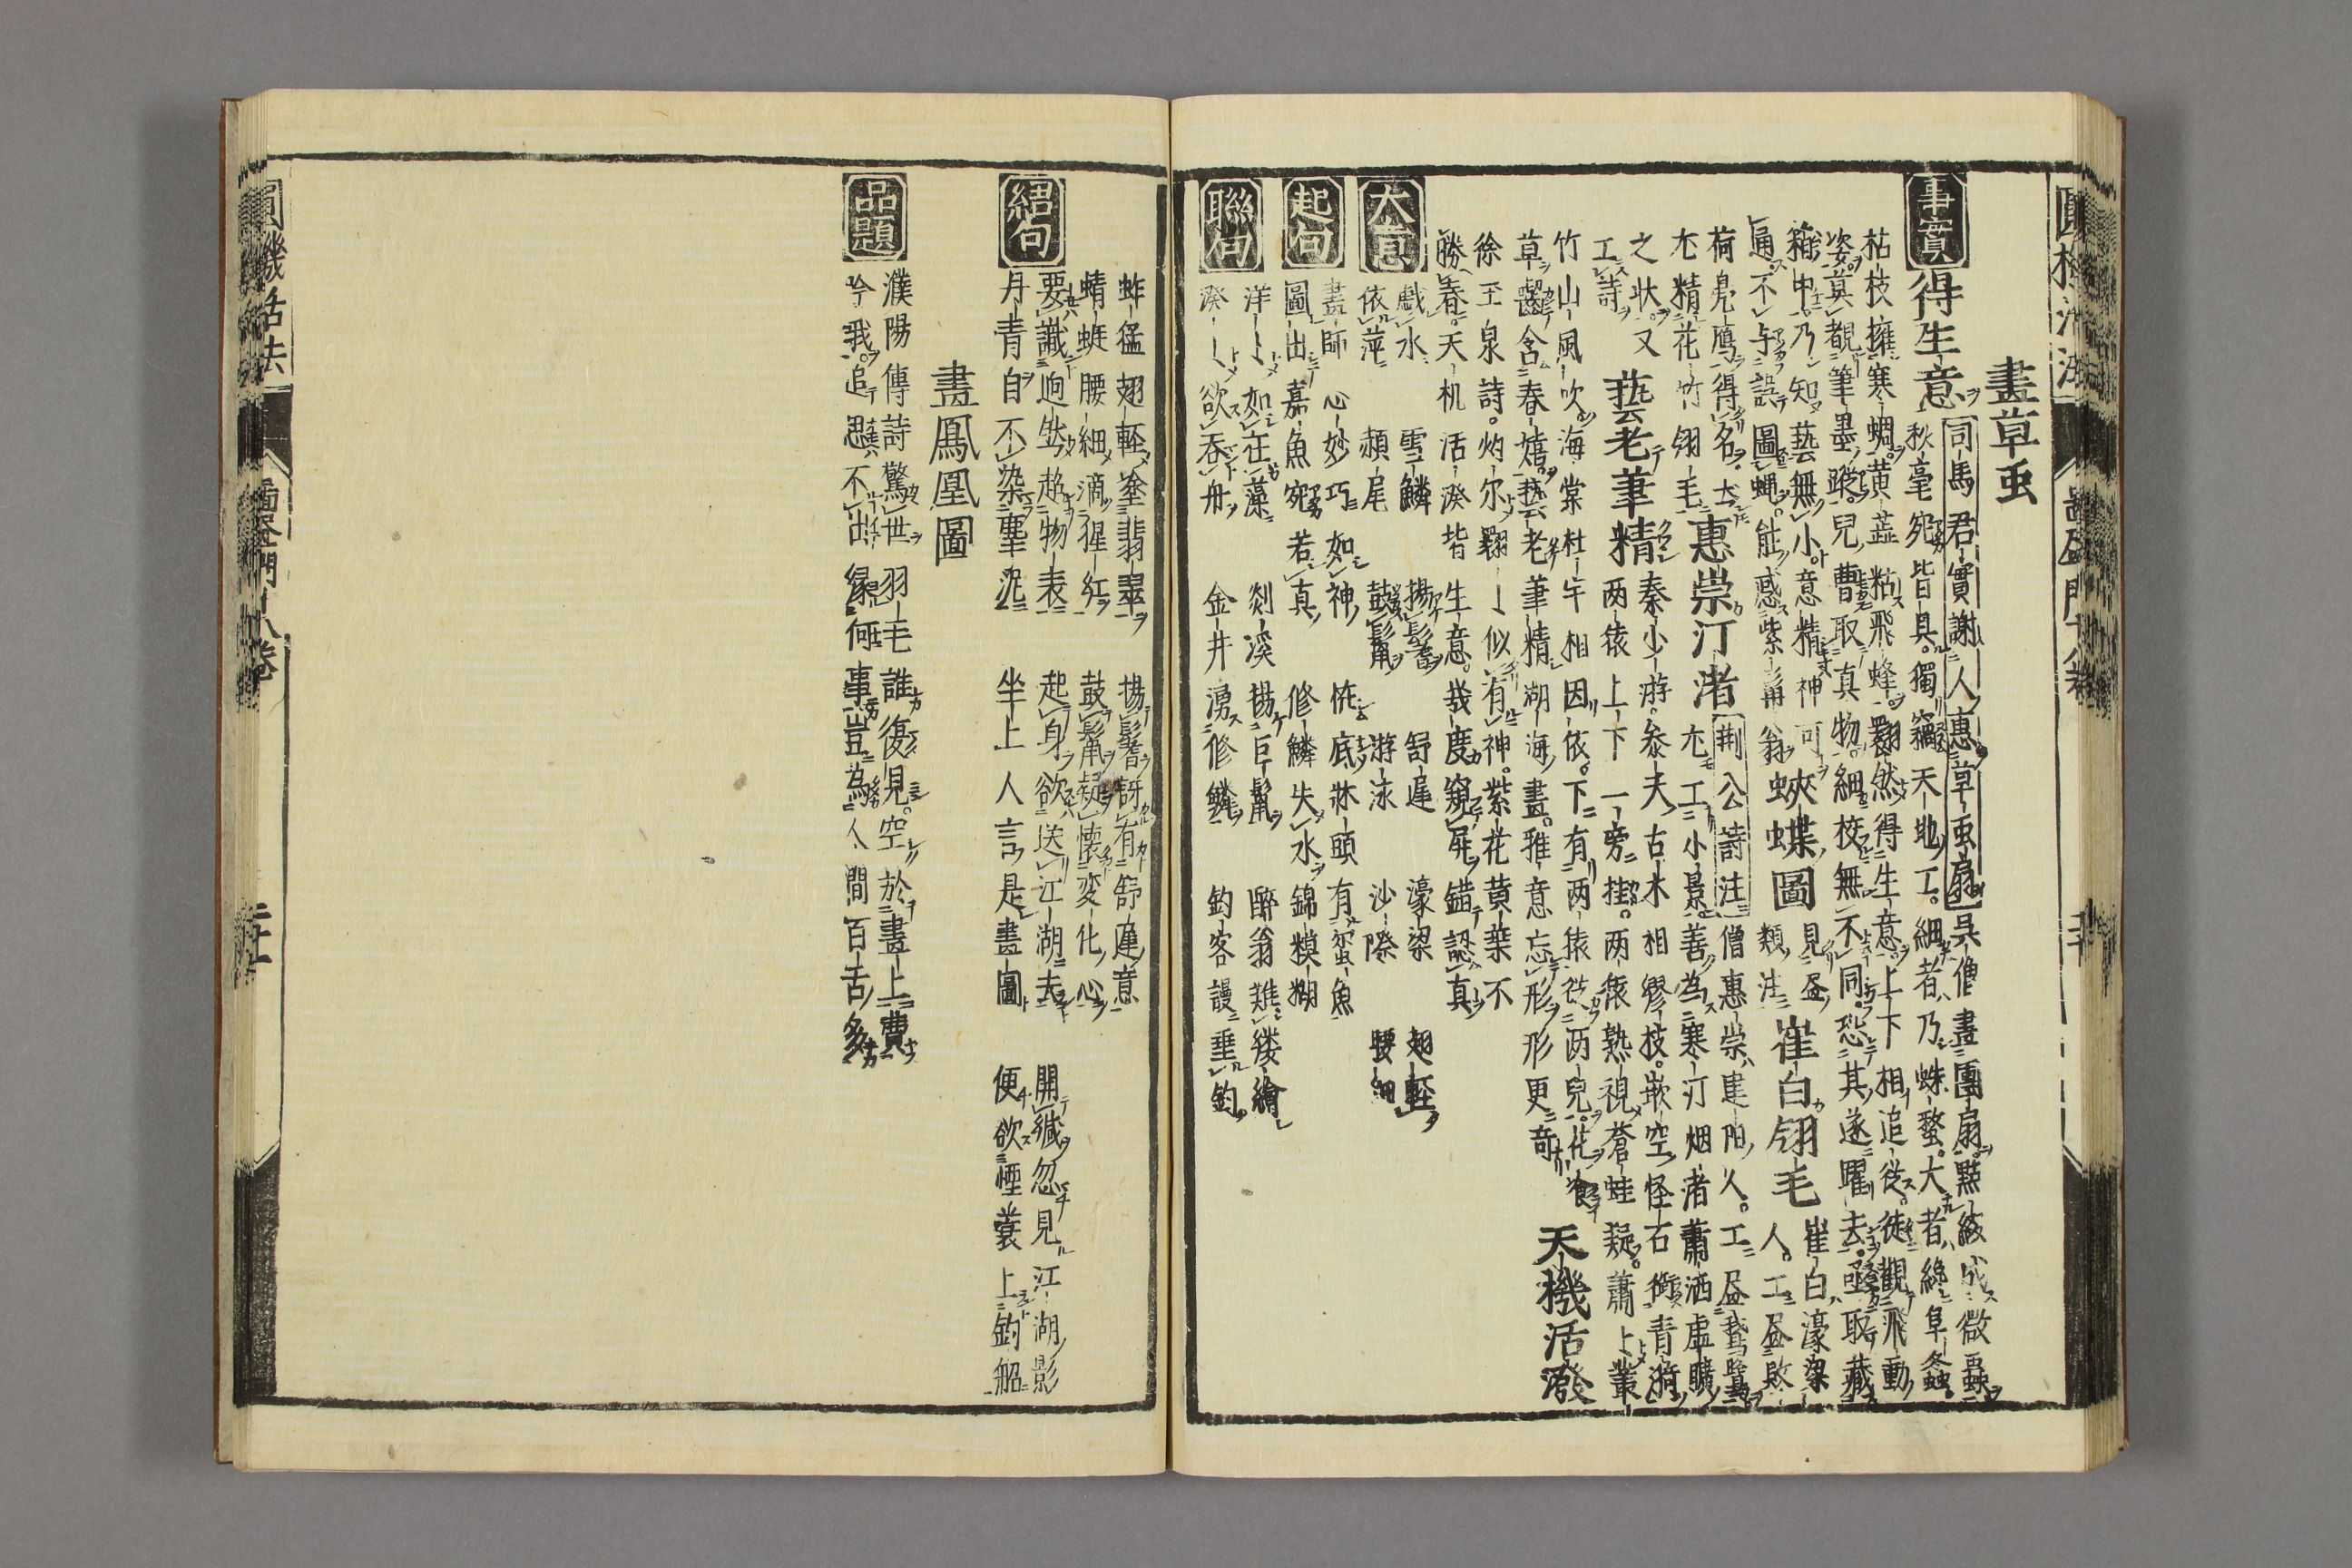 畫草虫
事實 得生意 司馬君實謝人惠草虫扇 吳僧畫團扇。點綴成微蟲
秋毫宛皆具。獨竊天地工。細者乃蛛蝥。大者綠阜螽。
枯枝擁寒蜩。黃蕋粘飛蜂。翾然得生意。上下相追從。徒觀飛動
姿。莫覩筆墨蹤。兒曹取真物。細校無不同。恐其遂躍去。亟取藏
箱中。乃知藝無小。意精神可
通。不與誤圖蝿。能惑紫髯翁 蛺蝶圖 見昼類注 崔白翎毛 崔白濠梁人。工昼敗
荷鳬鴈得名。尤
尤精花竹翎毛 惠崇汀渚 荆公詩注 僧惠崇建陽人。工昼鵞鴈鷺
尤工小景。善為寒汀烟渚蕭洒虛曠
之狀。又
工詩 藝老筆精 秦少游。叅夫古木相繆枝。嵌空怪石銜青漪
两猿上下一旁挂。两猿熟視蒼蛙疑。蕭上叢
竹山風吹。海棠杜午相因依。下有两猿從两兒。花
草齧含春嬉。藝老筆精湖海畫。雅意忘形形更奇 天機活潑
徐至泉詩。灼尔翾丨似有神。紫花黄葉不
勝春。天机活潑皆生意。幾度窺屏錯認真
大意 戲水 雪鱗 揚鬐 舒遅 濠梁 翅輕
依萍 頳尾 鼓鬣 游泳 沙際 腰細
起句 畫師心妙巧如神 恠底牀頭有蛮魚
圖出嘉魚宛若真 修鱗失水錦糢糊
聯句 洋丨如在藻 剡溪揚巨鬣 醉翁難縷繪
潑丨欲吞舟 金井湧修鱗 釣客謾垂鈎
蚱猛翅輕塗翡翠 揚鬐訝有舒遅意
蜻蜓腰細滴猩紅 鼓鬣疑懐変化心
結句 要識逈然超物表 起身欲送江湖去 開緘忽見江湖影
丹青自不染塵泥 坐上人言是畫圖 便欲煙蓑上釣船
畫鳳凰圖
品題 濮陽傳詩驚世 羽毛誰復見。空於畫上費
吟哦。追思不出縁何事。豈為人間百舌多
圓機活法 畵畫門十八巻